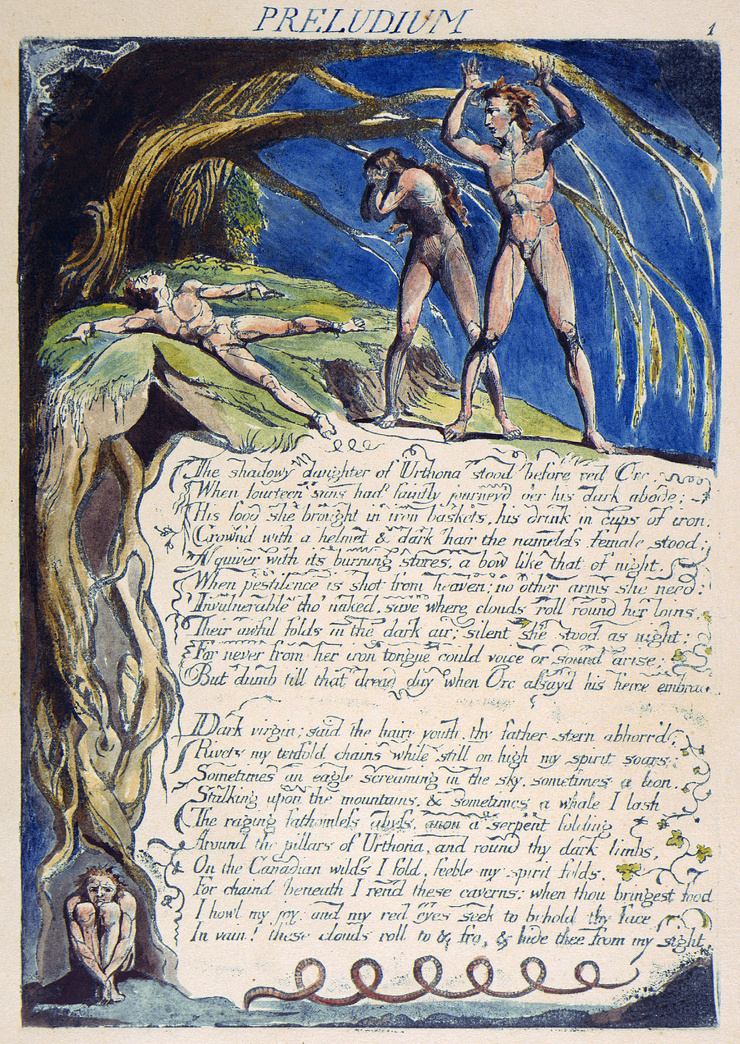 PRELUDIUM
1
The shadowy daughter of Urthona stood before red Orc.
When fourteen suns had faintly journey'd o'er his dark abode;
His food she brought in iron baskets, his drink in cups of iron;
Crown'd with a helmet & dark hair the nameless female stood;
A quiver with its burning stores, a bow like that of night,
When pestilence is shot from heaven; no other arms she need:
Invulnerable tho' naked, save where clouds roll round her loins,
Their awful folds in the dark air; silent she stood as night;
For never from her iron tongue could voice or sound arise;
But dumb till that dread day when Orc assay'd his fierce embrace.
Dark virgin; said the hairy youth, thy father stern abhorr'd;
Rivets my tenfold chains while still on high my spirit soars;
Sometimes an eagle screaming in the sky, sometimes a lion,
Stalking upon the mountains, & sometimes a whale I lash
The raging fathomless abyss, anon a serpent folding
Around the pillars of Urthona, and round thy dark limbs,
On the Canadian wilds I fold, feeble my spirit folds.
For chaind beneath I rend these caverns; when thou bringest food
I howl my joy: and my red eyes seek to behold thy face
In vain! these clouds roll to & fro, & hide thee from my sight.